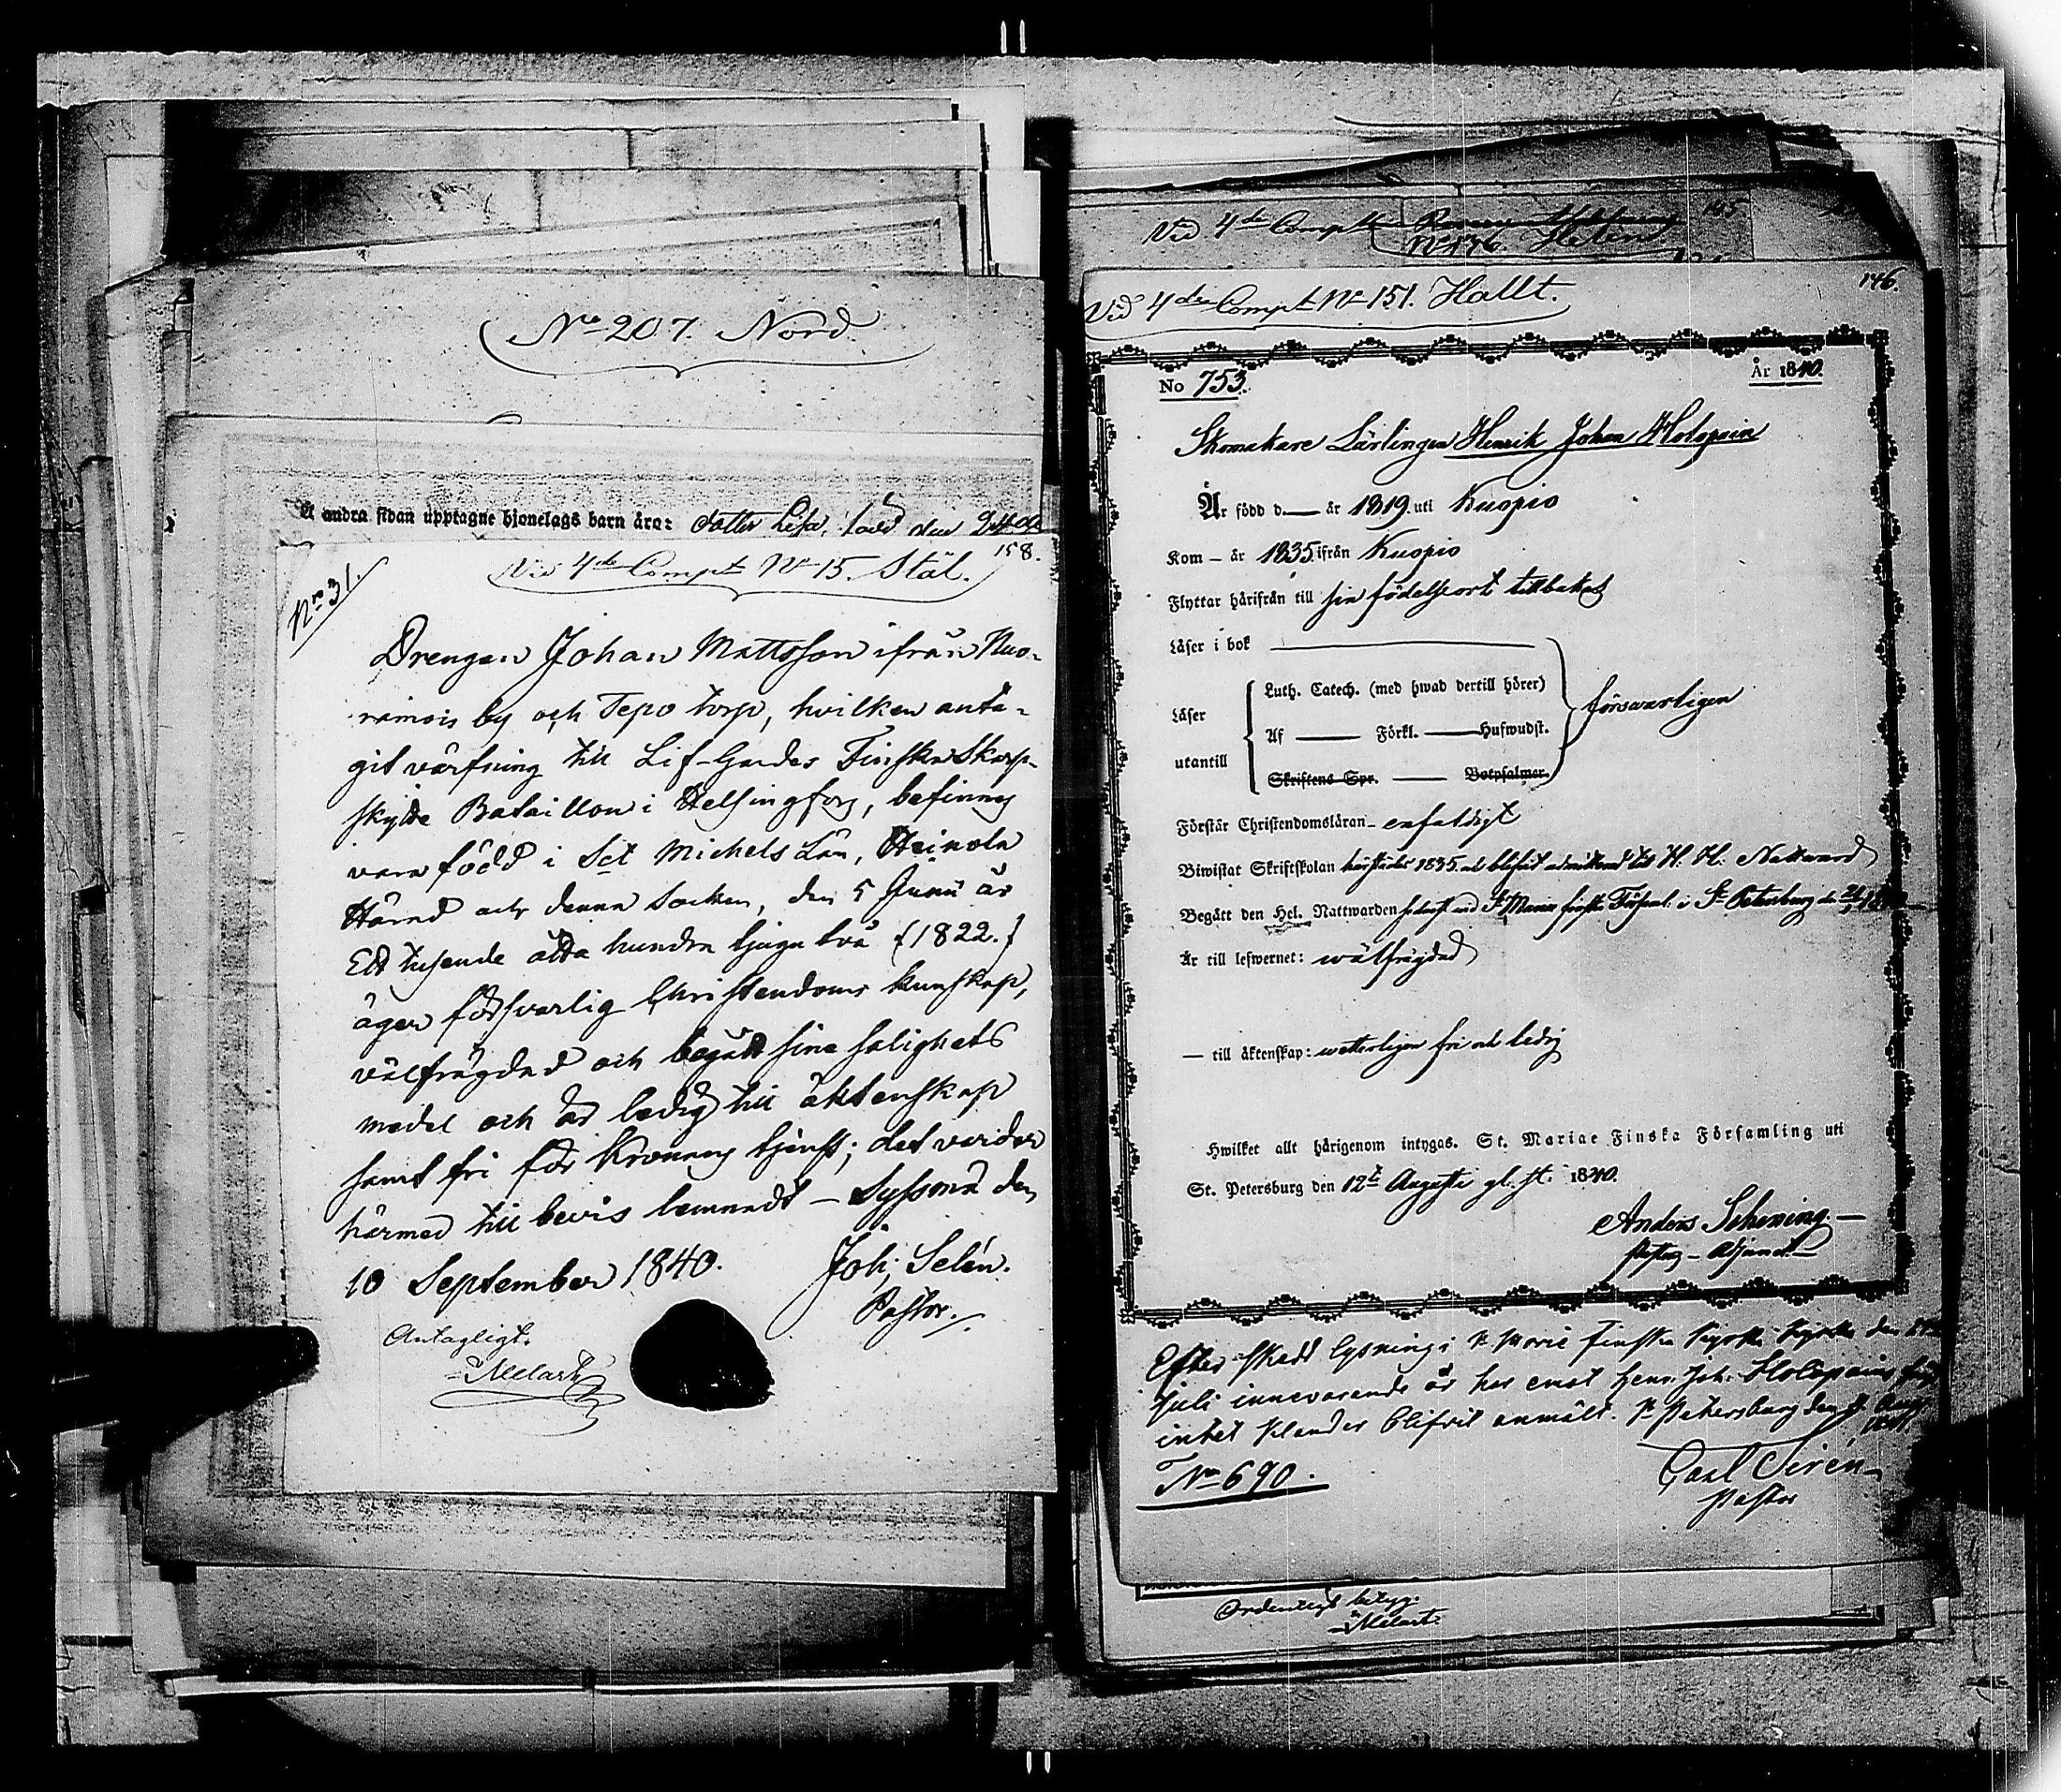 No 207. Nord
Å andra sidan upptagne hjonelags barn äro: dotter Lisa, född den
Vid 4de Compt No 15. Stål.
158.
Nro 31.
Drengen Johan Mattsson ifrån Nuo-
ramois by och Tepo torp, hvilken anta-
git värfning till Lif-Gardes Finska Skarp-
skytte Bataillon i Helsingfors, befinnes
vara född i Sct Michels Län, Heinola
Härad och denna Socken, den 5 Junii år
Ett tusende åtta hundra tjugu två (1822.)
äger försvarlig Christendoms kunskap,
välfrägdad och begått sine salighets
medel och är ledig till äktenskap
samt fri för Kronans tjenst; det varder
härmed till bevis lemnadt – Syssmä den
10 September 1840.
Joh; Selén.
Pastor.
Antagligt.
Melart
Vid 4de Compt
No 136 Helin
145
Vid 4de Compt No 151. Hallt.
146
No 753.
År 1840.
Skomakare Lärlingen Henrik Johan Holopain
Är född d. — år 1819 uti Kuopio
Kom – år 1835 ifrån Kuopio
Flyttar härifrån till sin födelseort tillbaka
Läser i bok
Läser
utantill
Luth. Catech. (med hwad dertill hörer)
Af — Förkl. — Hufwudst.
Skriftens Spr. — Botpsalmer.
försvarligen
Förstår Christendomsläran enfaldigt
Biwistat Skriftskolan härstädes 1835 och blifvit admitterad till H. H. Nattward
Begått den Hel. Nattwarden senast vid St Mariæ finska Förs. i St Petersburg de
Är till lefwernet: wälfrägdad
— till äktenskap: wetterligen fri och ledig
Hwilket allt härigenom intygas. St. Mariae Finska Församling uti
St. Petersburg den 12te Augusti gl. st. 1840.
Anders Schening
Pastors – Adjunct
Efter skedd lysning i St Marie finska kyrka den
Juli innevarande år har emot Henr. Joh. Holopain
intet klander blifvit anmält. St Petersburg den
No 690.
Carl Sirén
Pastor
Ordentligt betyg.
Melart.